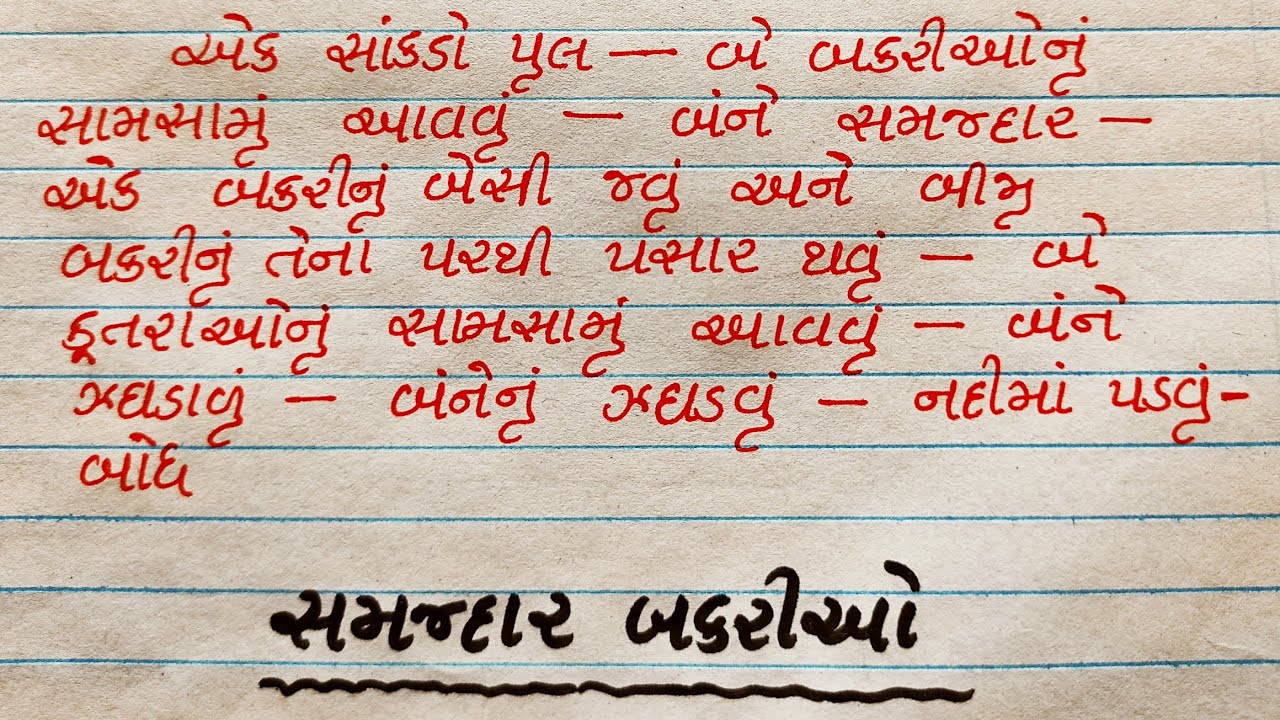 એક સાંકડો પુલ — બે બકરીઓનું
સામસામું આવવું — બંને સમજદાર —
એક બકરીનું બેસી જવું અને બીજી
બકરીનું તેના પરથી પસાર થવું — બે
કૂતરાઓનું સામસામું આવવું — બંને
ઝઘડાળુ — બંનેનું ઝઘડવું — નદીમાં પડવું -
બોધ
સમજદાર બકરીઓ